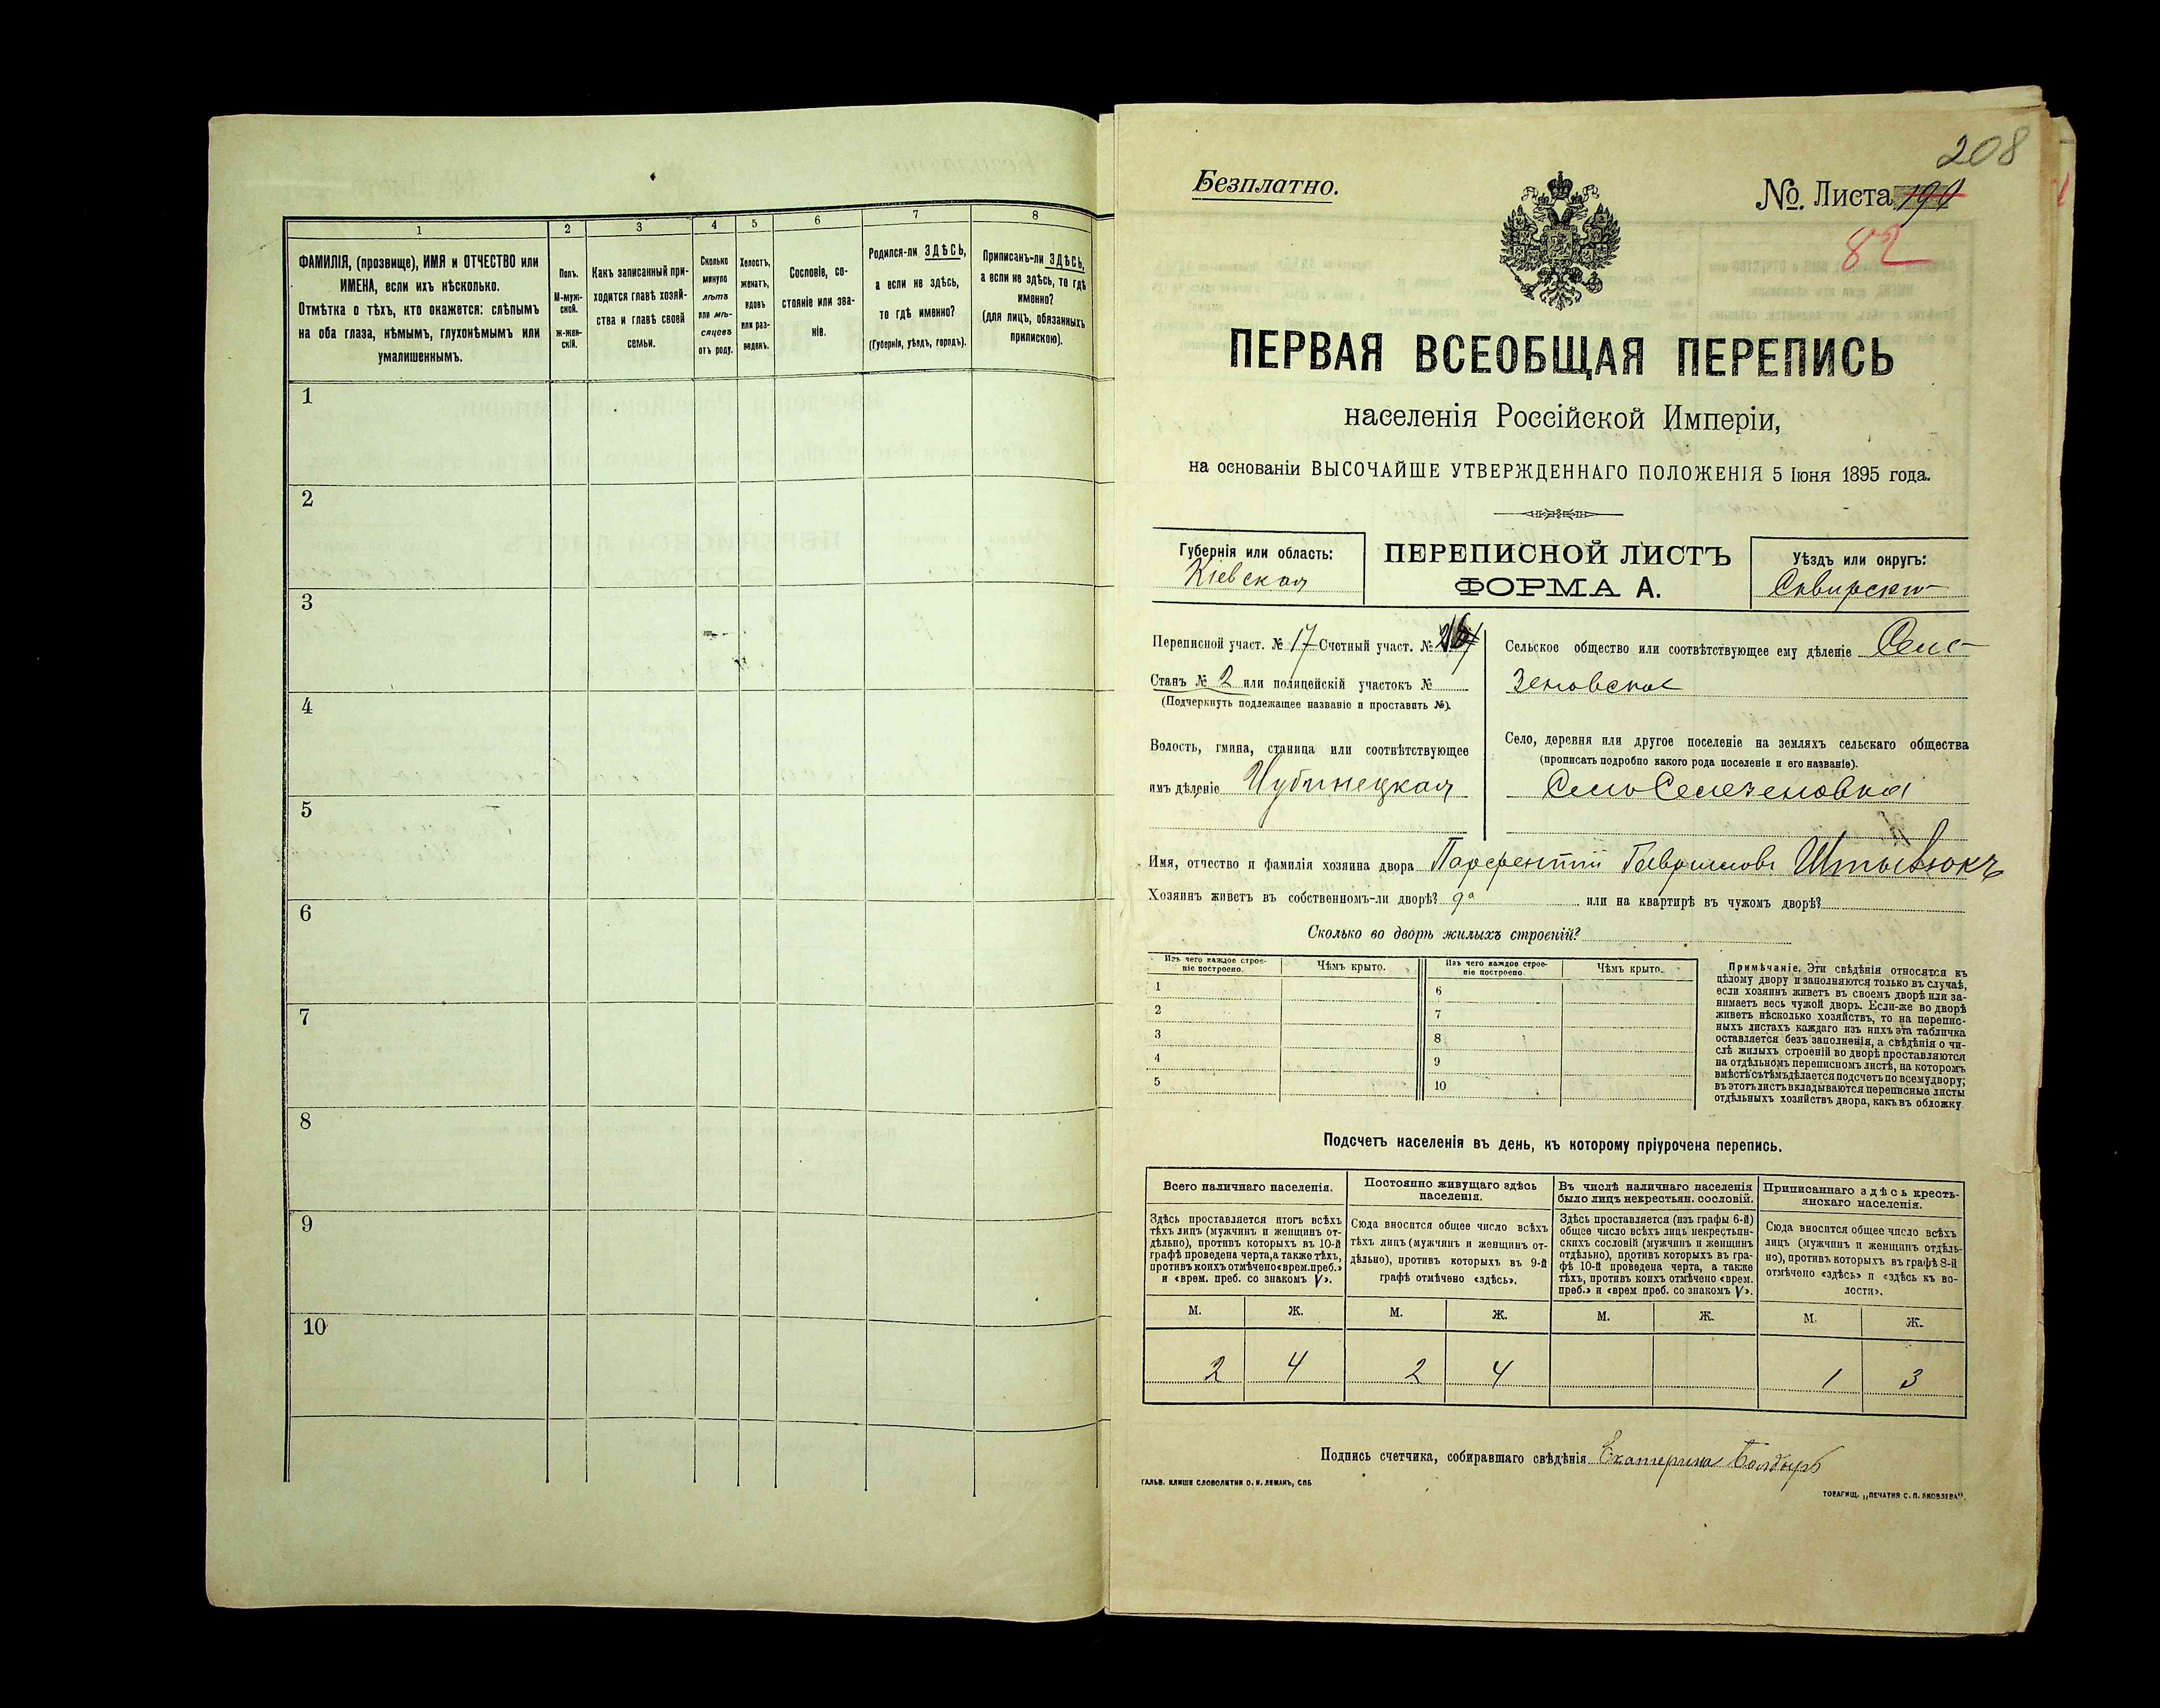 1
2
3
4
5
6
7
8
ФАМИЛІЯ, (прозвище), ИМЯ и ОТЧЕСТВО или
ИМЕНА, если ихъ нѣсколько.
Отмѣтка о тѣхъ, кто окажется: слѣпымъ
на оба глаза, нѣмымъ, глухонѣмымъ или
умалишеннымъ.
Полъ.
М-муж-
ской.
ж-жен-
скій.
Какъ записанный при-
ходится главѣ хозяй-
ства и главѣ своей
семьи.
Сколько
минуло
лѣтъ
или мѣ-
сяцевъ
отъ роду.
Холостъ,
женатъ,
вдовъ
или раз-
веденъ.
Сословіе, со-
стояніе или зва-
ніе.
Родился-ли ЗДѢСЬ,
а если не здѣсь,
то гдѣ именно?
(Губернія, уѣздъ, городъ).
Приписанъ-ли ЗДѢСЬ,
а если не здѣсь, то гдѣ
именно?
(для лицъ, обязанныхъ
припискою).
1
2
3
4
5
6
7
8
9
10
208
Безплатно.
№. Листа
82
ПЕРВАЯ ВСЕОБЩАЯ ПЕРЕПИСЬ
населенія Россійской Имперіи,
на основаніи ВЫСОЧАЙШЕ УТВЕРЖДЕННАГО ПОЛОЖЕНІЯ 5 Іюня 1895 года.
Губернія или область:
Кіевская
ПЕРЕПИСНОЙ ЛИСТЪ
ФОРМА А.
Уѣздъ или округъ:
Сквирскій
Переписной участ. № 17 Счетный участ. №
Станъ № 2 или полицейскій участокъ №
(Подчеркнуть подлежащее названіе и проставить №).
Волость, гмина, станица или соотвѣтствующее
имъ дѣленіе Чубинецкая
Сельское общество или соотвѣтствующее ему дѣленіе Селе-
зеновское
Село, деревня или другое поселеніе на земляхъ сельскаго общества
(прописать подробно какого рода поселеніе и его названіе).
Село Селезеновка
Имя, отчество и фамилія хозяина двора Парфентій Гавриловъ
Хозяинъ живетъ въ собственномъ-ли дворѣ? да или на квартирѣ въ чужомъ дворѣ?
Сколько во дворѣ жилыхъ строеній?
Изъ чего каждое строе-
ніе построено.
Чѣмъ крыто.
Изъ чего каждое строе-
ніе построено.
Чѣмъ крыто.
1
2
3
4
5
6
7
8
9
10
Примѣчаніе. Эти свѣдѣнія относятся къ
цѣлому двору и заполняются только въ случаѣ,
если хозяинъ живетъ въ своемъ дворѣ или за-
нимаетъ весь чужой дворъ. Если-же во дворѣ
живетъ нѣсколько хозяйствъ, то на перепис-
ныхъ листахъ каждаго изъ нихъ эта табличка
оставляется безъ заполненія, а свѣдѣнія о чи-
слѣ жилыхъ строеній во дворѣ проставляются
на отдѣльномъ переписномъ листѣ, на которомъ
вмѣстѣ съ тѣмъ дѣлается подсчетъ по всему двору;
въ этотъ листъ вкладываются переписные листы
отдѣльныхъ хозяйствъ двора, какъ въ обложку.
Подсчетъ населенія въ день, къ которому пріурочена перепись.
Всего наличнаго населенія.
Постоянно живущаго здѣсь
населенія.
Въ числѣ наличнаго населенія
было лицъ некрестьян. сословій.
Приписаннаго здѣсь кресть-
янскаго населенія.
Здѣсь проставляется итогъ всѣхъ
тѣхъ лицъ (мужчинъ и женщинъ от-
дѣльно), противъ которыхъ въ 10-й
графѣ проведена черта, а также тѣхъ,
противъ коихъ отмѣчено «врем. преб.»
и «врем. преб. со знакомъ V».
Сюда вносится общее число всѣхъ
тѣхъ лицъ (мужчинъ и женщинъ от-
дѣльно), противъ которыхъ въ 9-й
графѣ отмѣчено «здѣсь».
Здѣсь проставляется (изъ графы 6-й)
общее число всѣхъ лицъ некрестьян-
скихъ сословій (мужчинъ и женщинъ
отдѣльно), противъ которыхъ въ гра-
фѣ 10-й проведена черта, а также
тѣхъ, противъ коихъ отмѣчено «врем.
преб.» и «врем преб. со знакомъ V».
Сюда вносится общее число всѣхъ
лицъ (мужчинъ и женщинъ отдѣль-
но), противъ которыхъ въ графѣ 8-й
отмѣчено «здѣсь» и «здѣсь къ во-
лости».
М. Ж. М. Ж. М. Ж. М. Ж.
2 4 2 4 1 3
Подпись счетчика, собиравшаго свѣдѣнія Екатерина Балдыръ
ГАЛЬВ. КЛИШЕ СЛОВОЛИТНИ О. И. ЛЕМАНЪ, СПБ
ТОВАРИЩ. „ПЕЧАТНЯ С. П. ЯКОВЛЕВА".